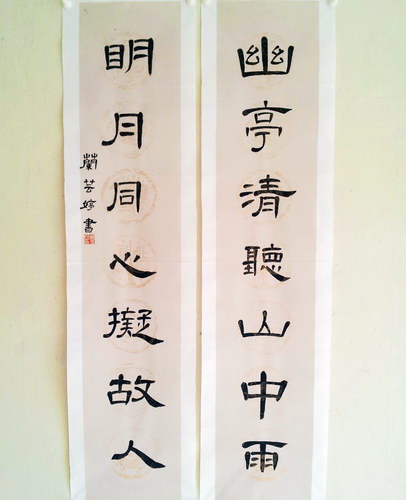 幽亭清聽山中雨
明月同心擬故人
蘭芸婷書